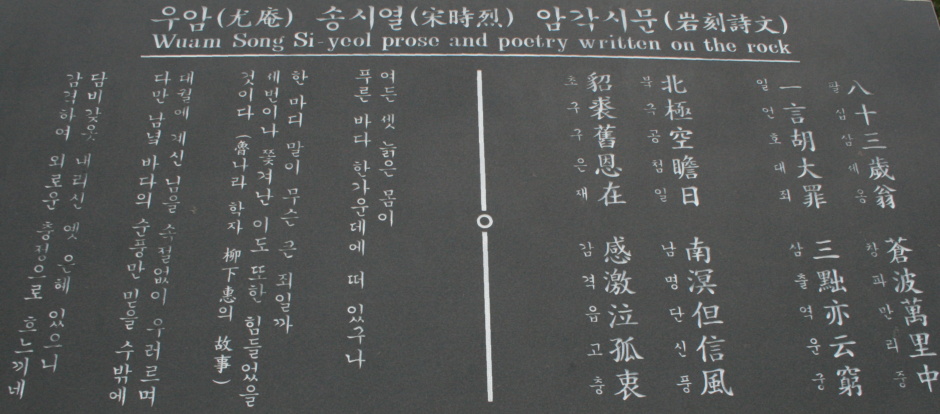 우암(尤庵) 송시열(宋時烈) 암각시문(岩刻詩文)
Wuam Song Si-yeol prose and poetry written on the rock
八十三歲翁 蒼波萬里中
팔십삼세옹 창파만리중
一言胡大罪 三黜亦云窮
일언호대죄 삼출역운궁
北極空瞻日 南溟但信風
북극공첨일 남명단신풍
貂裘舊恩在 感激泣孤衷
초구구은재 감격읍고충
여든 셋 늙은 몸이
푸른 바다 한가운데에 떠 있구나
한 마디 말이 무슨 큰 죄일까
세번이나 쫓겨난 이도 또한 힘들었을
것이다 (魯나라 학자 柳下惠의 故事)
대궐에 계신 님을 속절없이 우러르며
다만 남녘 바다의 순풍만 믿을 수밖에
담비갖옷 내리신 옛 은혜 있으니
감격하여 외로운 충정으로 흐느끼네